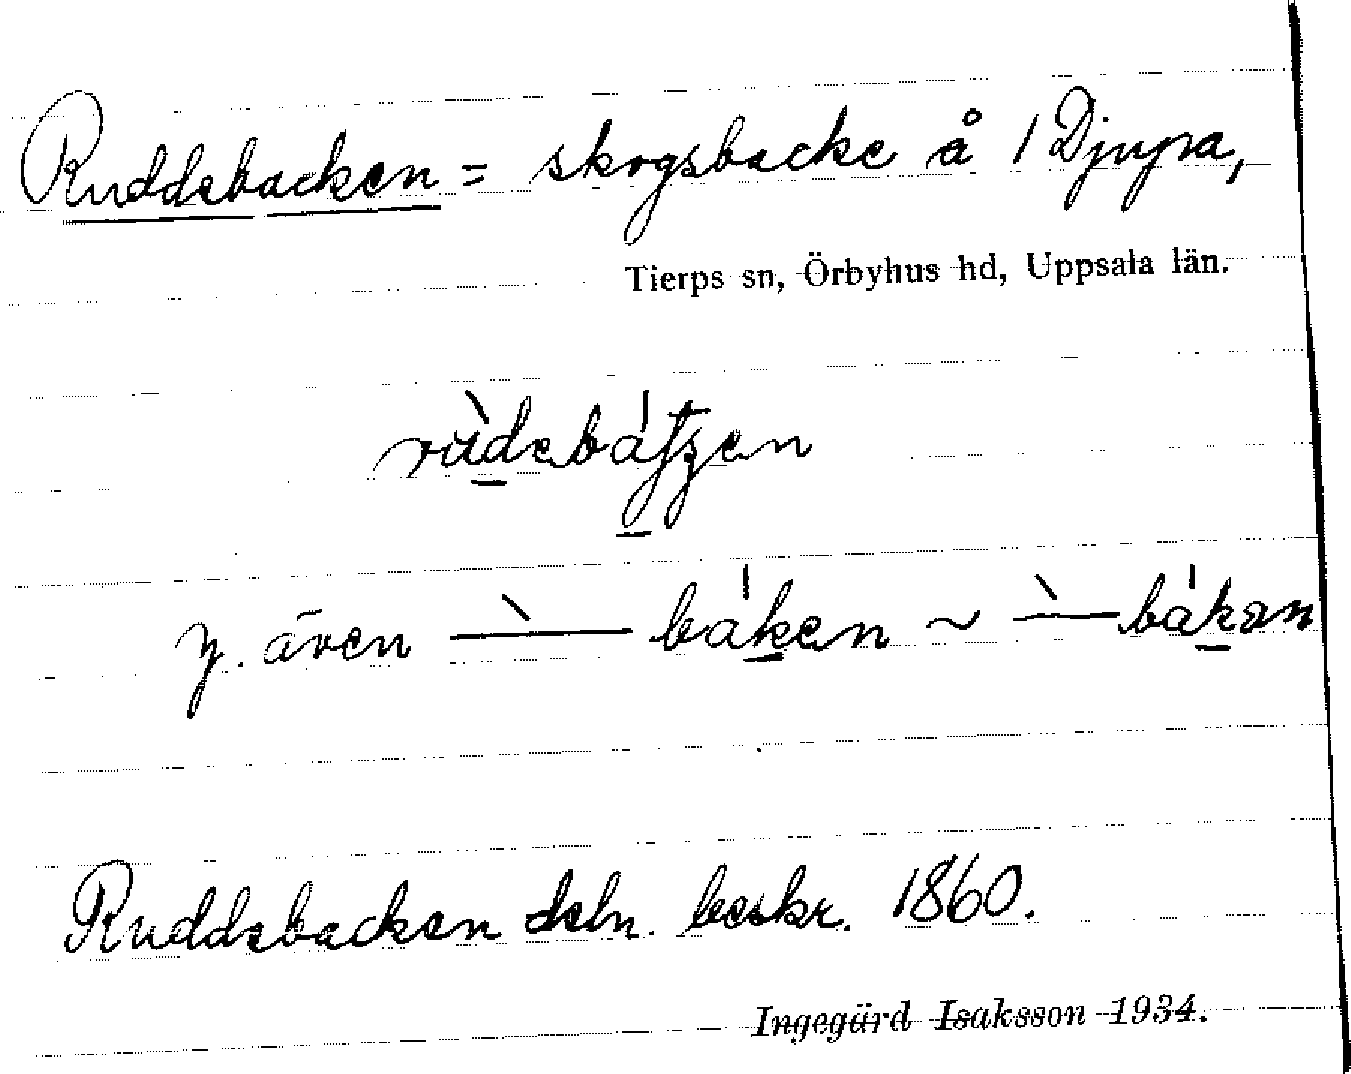 Ruddebacken = skogsbacke å 1 Djupa,
Tierps sn, Örbyhus hd, Uppsala län.
y. även
Ruddebacken deln. beskr. 1860.
Ingegärd Isaksson 1934.